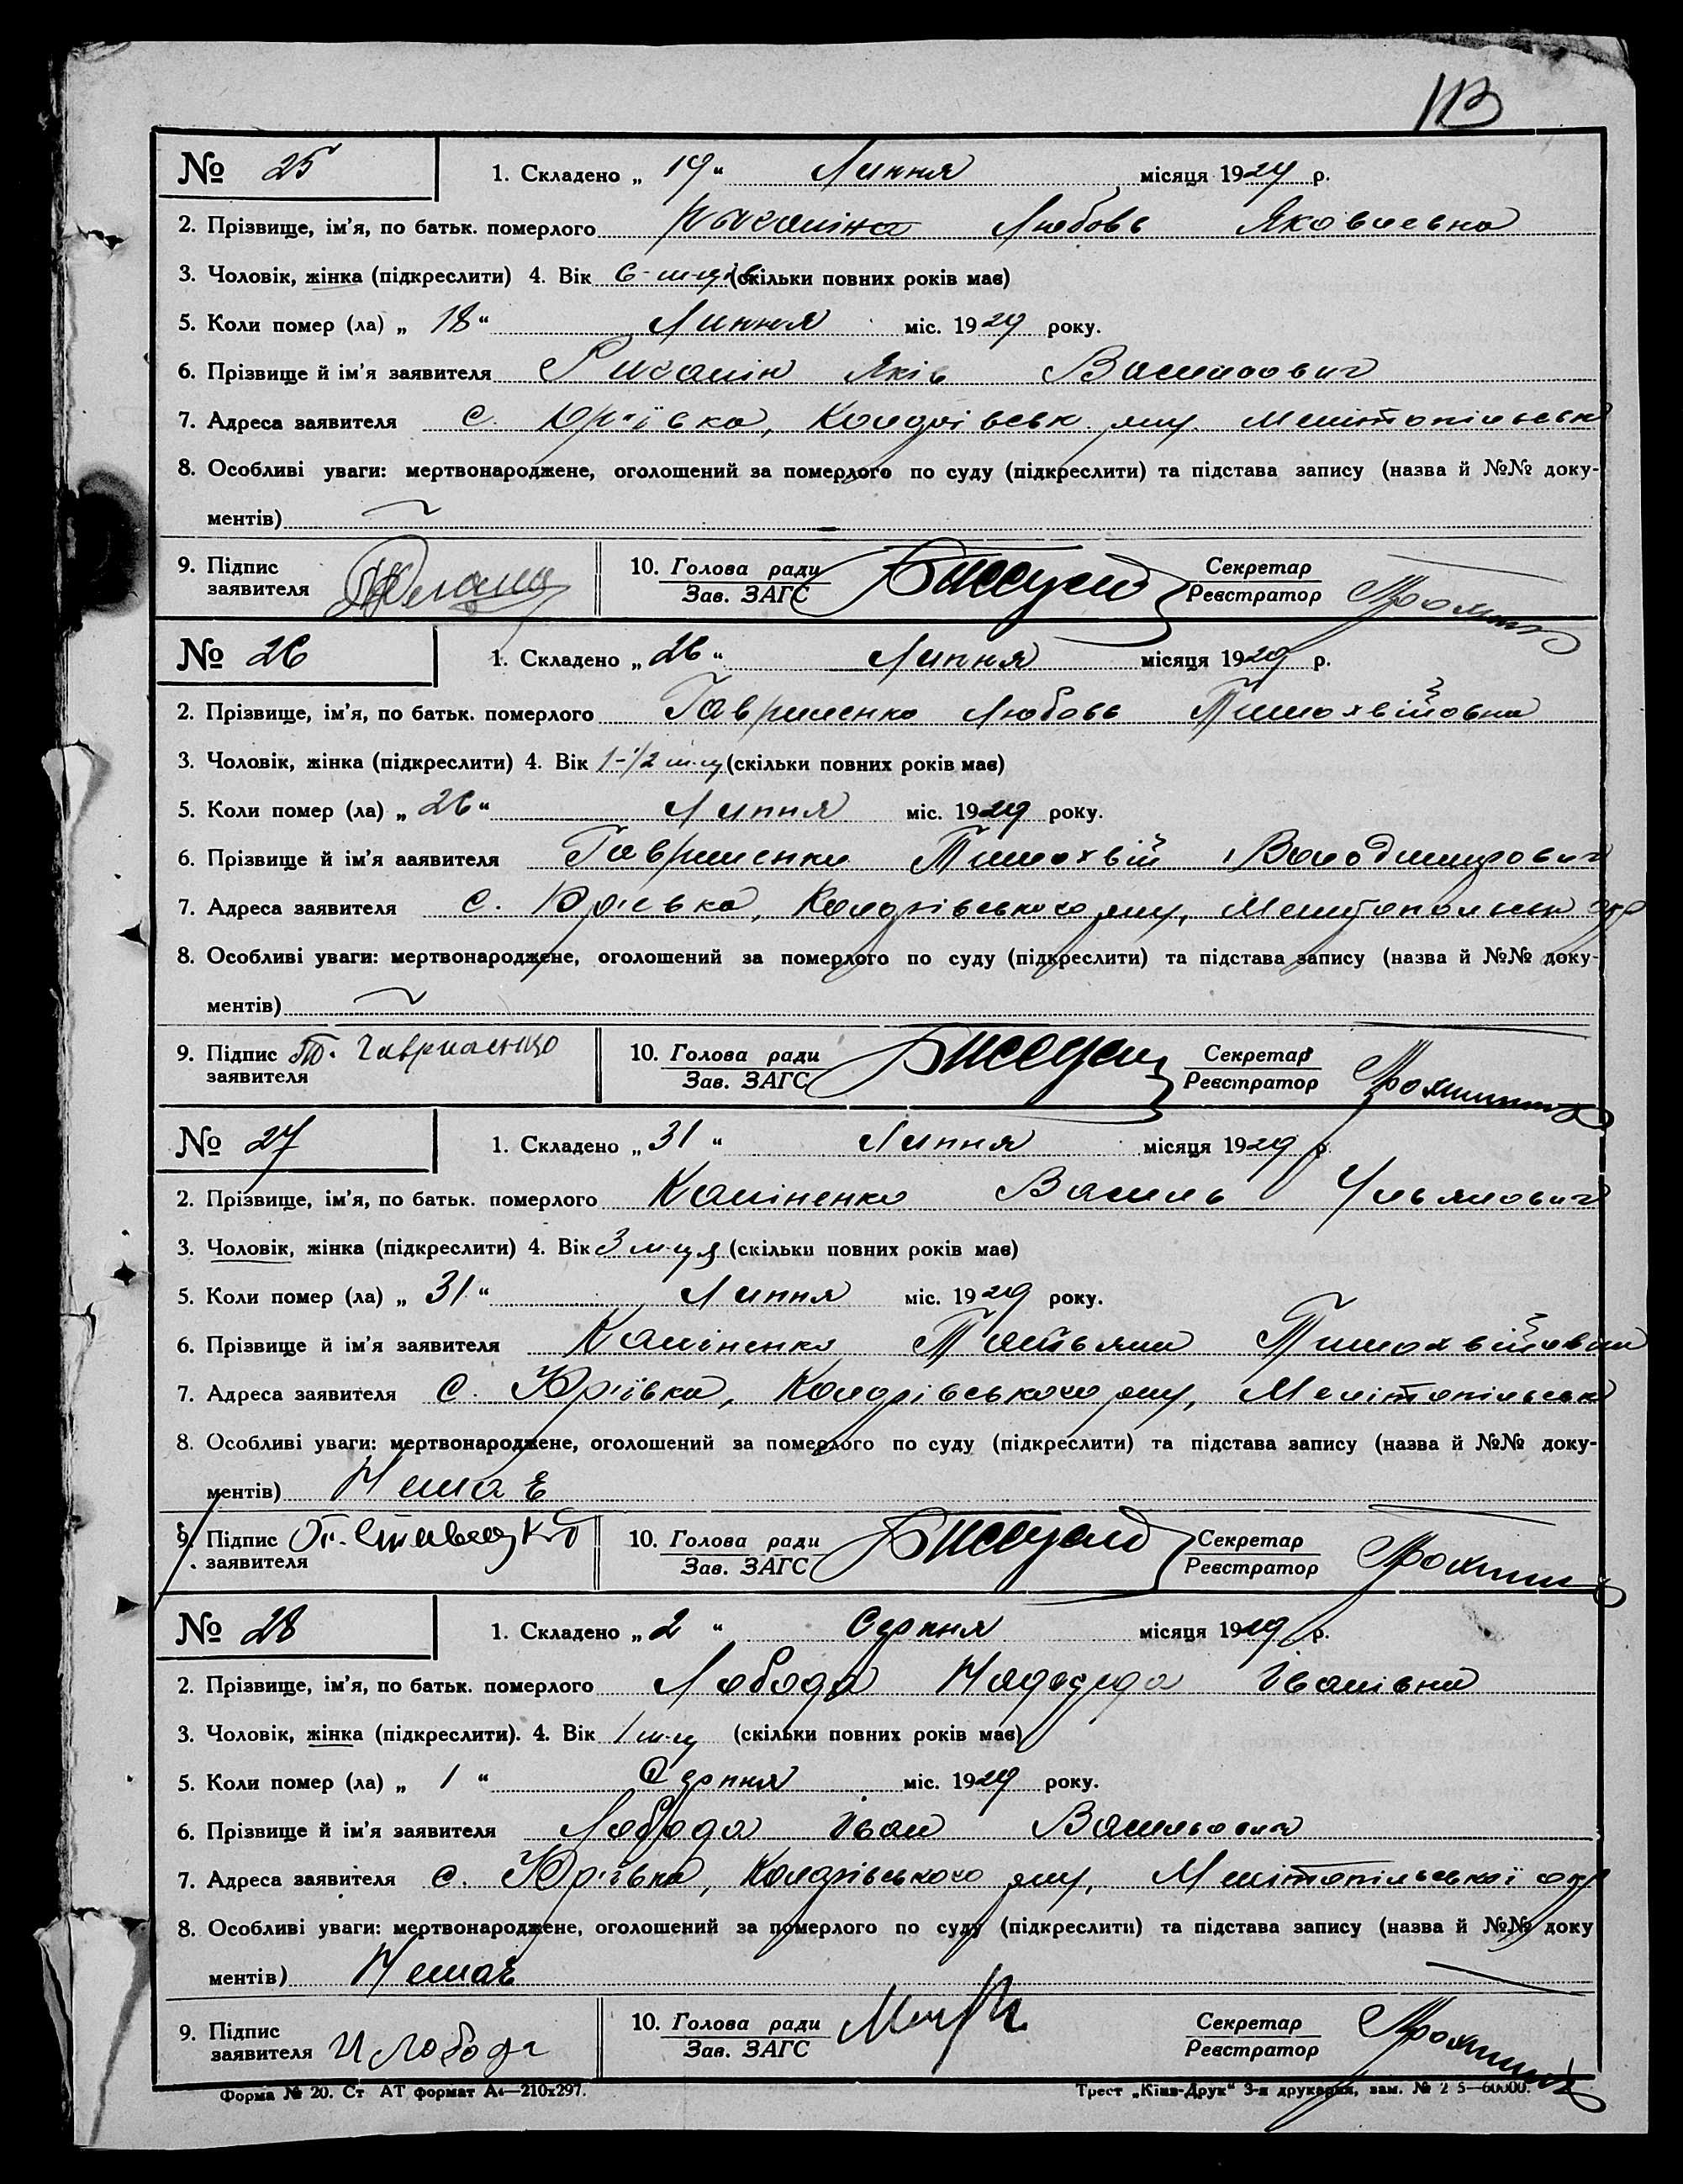 113
№ 25 1. Складено „ 19 “ Липня місяця 1929 р.
2. Прізвище, ім’я, по батьк. померлого Любовь Яковлевна
3. Чоловік, жінка (підкреслити) 4. Вік 6-м-ців (скільки повних років має)
5. Коли помер (ла) „ 18 “ Липня міс. 1929 року.
6. Прізвище й ім’я заявителя Яків Василович
7. Адреса заявителя с. Юр'ївка, Мелітопільськ
8. Особливі уваги: мертвонароджене, оголошений за померлого по суду (підкреслити) та підстава запису (назва й №№ доку-
ментів)
9. Підпис 10. Голова ради Секретар
заявителя Зав. ЗАГС Реєстратор
№ 26 1. Складено „ 26 “ Липня місяця 1929 р.
2. Прізвище, ім’я, по батьк. померлого Гавриленко Любовь Тимохвійовна
3. Чоловік, жінка (підкреслити) 4. Вік 1-1/2 м-ц (скільки повних років має)
5. Коли помер (ла) „ 26 “ Липня міс. 1929 року.
6. Прізвище й ім’я заявителя Гавриленко Тимохвій Володимирович
7. Адреса заявителя с. Юр'ївка, окр
8. Особливі уваги: мертвонароджене, оголошений за померлого по суду (підкреслити) та підстава запису (назва й №№ доку-
ментів)
9. Підпис Т. Гавриленко 10. Голова ради Секретар
заявителя Зав. ЗАГС Реєстратор
№ 27 1. Складено „ 31 “ Липня місяця 1929 р.
2. Прізвище, ім’я, по батьк. померлого Каміненко Василь Ульянович
3. Чоловік, жінка (підкреслити) 4. Вік 3 м-ця (скільки повних років має)
5. Коли помер (ла) „ 31 “ Липня міс. 1929 року.
6. Прізвище й ім’я заявителя Каміненко
7. Адреса заявителя с. Юр'ївка, Мелітопільськ
8. Особливі уваги: мертвонароджене, оголошений за померлого по суду (підкреслити) та підстава запису (назва й №№ доку-
ментів) Немає
9. Підпис 10. Голова ради Секретар
заявителя Зав. ЗАГС Реєстратор
№ 28 1. Складено „ 2 “ Серпня місяця 1929 р.
2. Прізвище, ім’я, по батьк. померлого Лобода Надежда Іванівна
3. Чоловік, жінка (підкреслити). 4. Вік 1 м-ц (скільки повних років має)
5. Коли помер (ла) „ 1 “ Серпня міс. 1929 року.
6. Прізвище й ім’я заявителя Лобода Іван Васильович
7. Адреса заявителя с. Юр'ївка, Мелітопільської окр
8. Особливі уваги: мертвонароджене, оголошений за померлого по суду (підкреслити) та підстава запису (назва й №№ доку
ментів) Немає
9. Підпис 10. Голова ради Секретар
заявителя И Лобода Зав. ЗАГС Реєстратор
Форма № 20. Ст АТ формат А4—210х297. Трест „Київ-Друк“ 3-я друкарня, зам. № 2 5—60000.